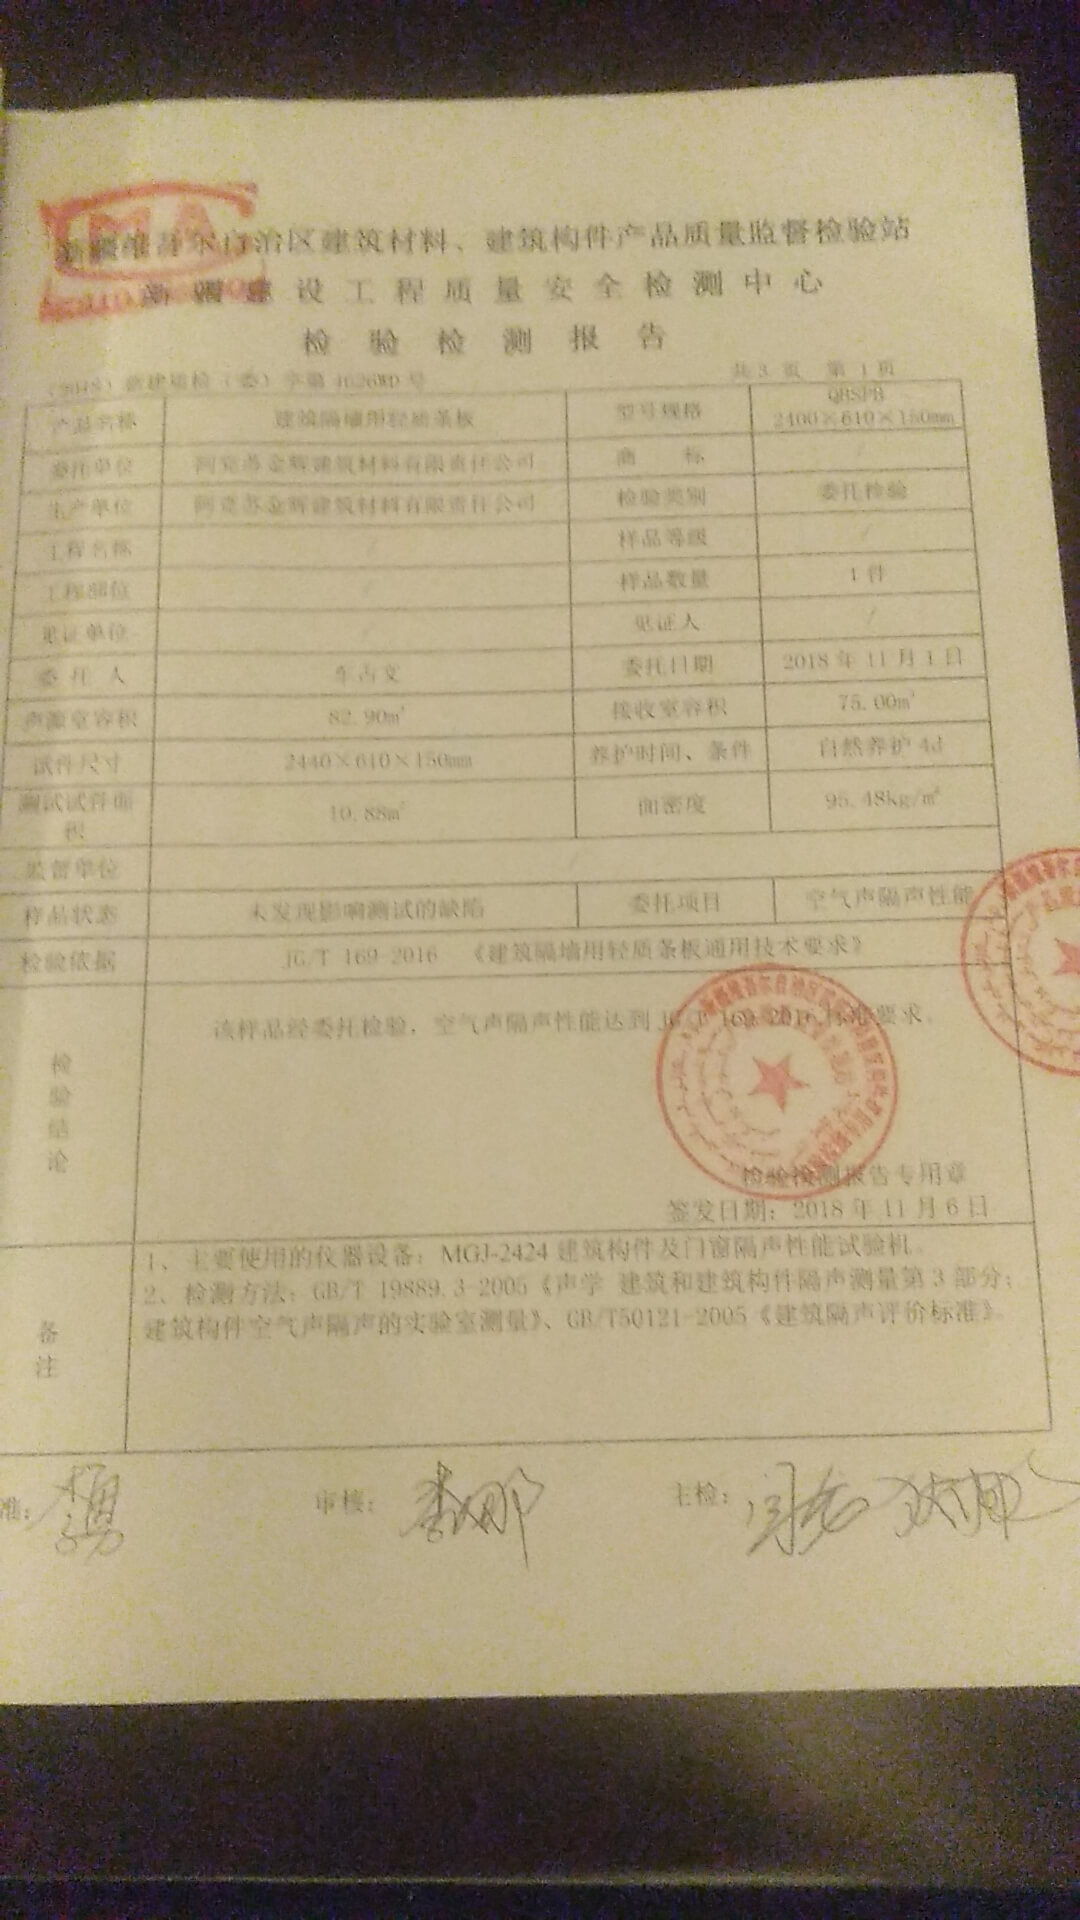 新疆维吾尔自治区建筑材料、建筑构件产品质量监督检验站
新疆建设工程质量安全检测中心
检验检测报告
共3页 第1页
产品名称 建筑隔墙用轻质条板 型号规格 QBSPB 2400×610×150mm
委托单位 阿克苏金辉建筑材料有限责任公司 商 标 /
生产单位 阿克苏金辉建筑材料有限责任公司 检验类别 委托检验
工程名称 / 样品等级 /
工程部位 / 样品数量 1件
见证单位 / 见证人 /
委托人 车占文 委托日期 2018年11月1日
声源室容积 82.90m³ 接收室容积 75.00m³
试件尺寸 2440×610×150mm 养护时间、条件 自然养护4d
测试试件面积 10.88m² 面密度 95.48kg/m²
监督单位 /
样品状态 未发现影响测试的缺陷 委托项目 空气声隔声性能
检验依据 JG/T 169-2016 《建筑隔墙用轻质条板通用技术要求》
检验结论
该样品经委托检验，空气声隔声性能达到JG/T 169-2016标准要求。
检验检测报告专用章
签发日期：2018年11月6日
备注
1、主要使用的仪器设备：MGJ-2424建筑构件及门窗隔声性能试验机。
2、检测方法：GB/T 19889.3-2005《声学 建筑和建筑构件隔声测量第3部分：
建筑构件空气声隔声的实验室测量》、GB/T50121-2005《建筑隔声评价标准》。
准： 审核： 主检：